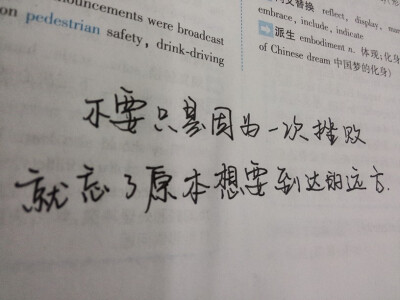 nouncements were broadcast
on pedestrian safety, drink-driving
义替换 reflect, display,
embrace, include, indicate
派生 embodiment n. 体现;化身
of Chinese dream 中国梦的化身)
不要只是因为一次挫败
就忘了原本想要到达的远方.